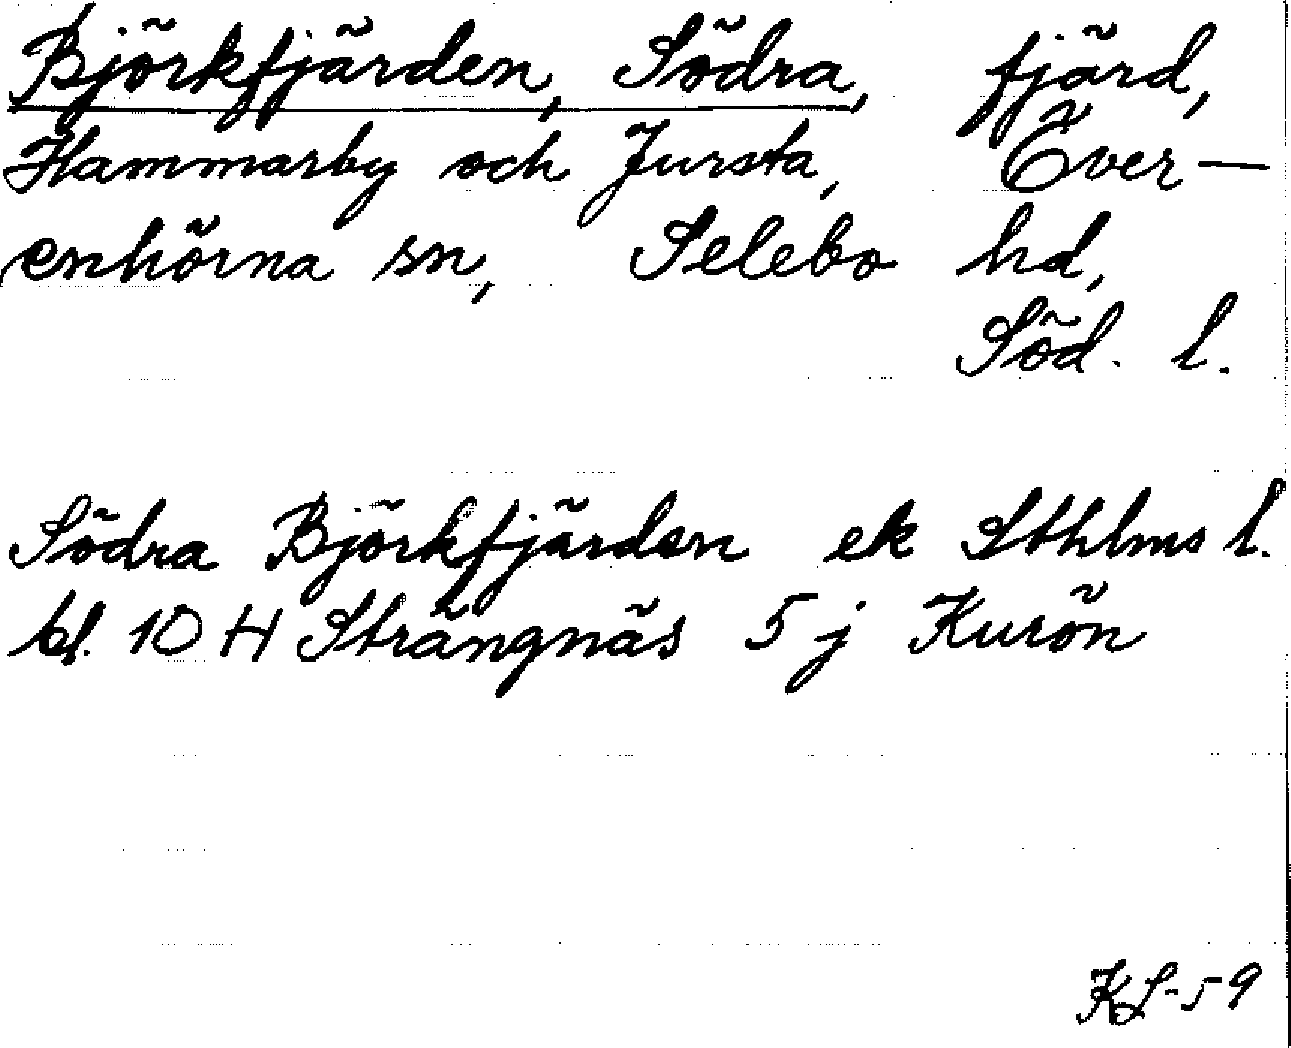 Björkfjärden, Södra, fjärd,
Hammarby och Jursta, Över-
enhörna sn, Selebo hd,
Söd. l.
Södra Björkfjärden ek Sthlms l.
bl. 10 H Strängnäs 5 j Kurön
KL-59